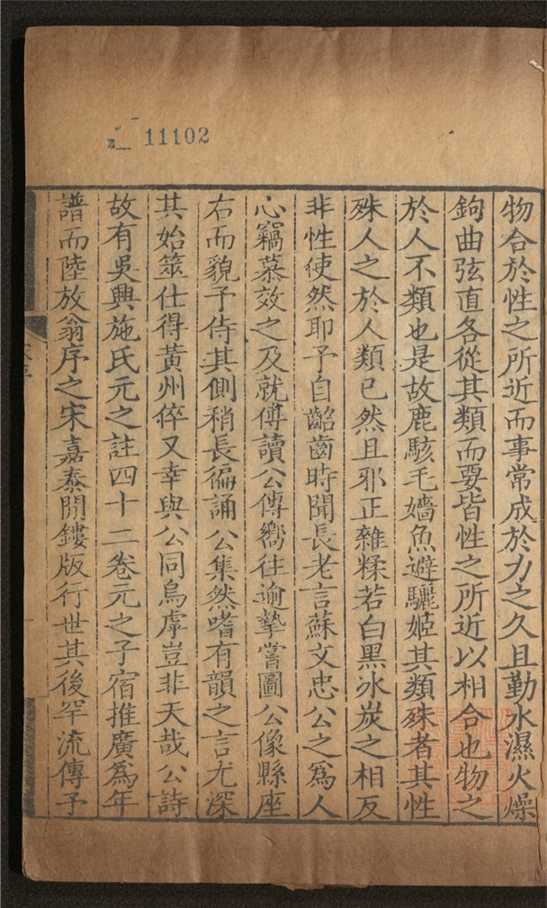 11102
物合於性之所近而事常成於力之久且勤水濕火燥
鉤曲弦直各從其類而要皆性之所近以相合也物之
於人不類也是故鹿駭毛嬙魚避驪姬其類殊者其性
殊人之於人類已然且邪正雜糅若白黑冰炭之相反
非性使然耶予自齠齒時聞長老言蘇文忠公之為人
心竊慕效之及就傅讀公傳嚮往逾摯嘗圖公像縣座
右而貌予侍其側稍長徧誦公集然嗜有韻之言尤深
其始筮仕得黃州倅又幸與公同烏虖豈非天哉公詩
故有吳興施氏元之註四十二卷元之子宿推廣為年
譜而陸放翁序之宋嘉泰閒鏤版行世其後罕流傳予